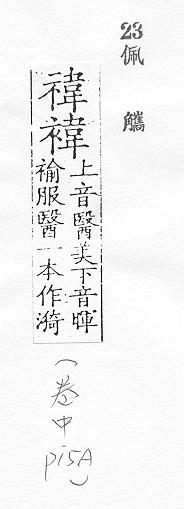 23
佩觿
禕褘
上音醫美下音暉
褕服醫一本作漪
(卷中
p15A)